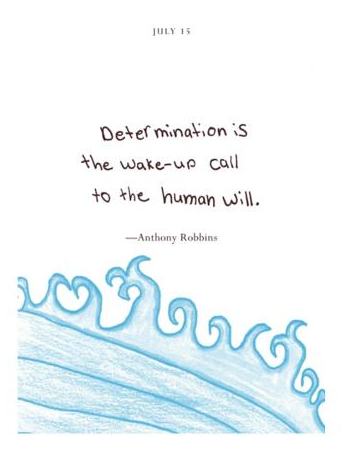 JULY 15
Determination is
the wake-up call
to the human will.
—Anthony Robbins